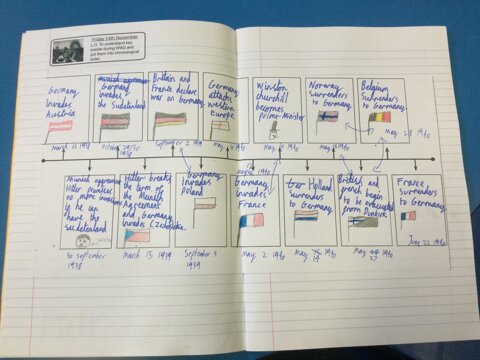 Friday 14th November
L.O. To understand key
events during WW2 and
put them into chronological
order.
Germany
invades
Austria
March 12 1938
munich agreement
Germany
invades
the Sudetenland
1938
Britain and
France declare
war on Germany
September 3 1939
Germany
attacks
western
Europe
May
Winston
churchill
becomes
Prime Minister
May 10 1940
Norway
surrenders
to Germany
May 1940
Belgium
Surrenders
to Germany
May 28 1940
Munich agreement
Hitler promises
no more invasions
if he can
have the
Sudetenland
30 september
1938
Hitler breaks
the term of
the Munich
Agreement
and Germany
invades
March 15 1939
Germany
invades
Poland
September 3
1939
Germany
invades
France
May 2 1940
Holland
Surrenders
to Germany
May 14 1940
British and
french begin
to be evacuated
from Dunkirk
May 27 1940
France
surrenders
to Germany
June 22 1940